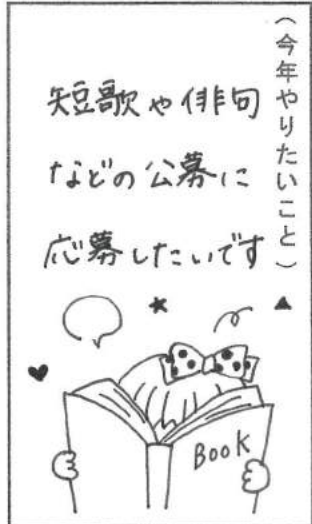 （今年やりたいこと）
短歌や俳句
などの公募に
応募したいです
BOOK